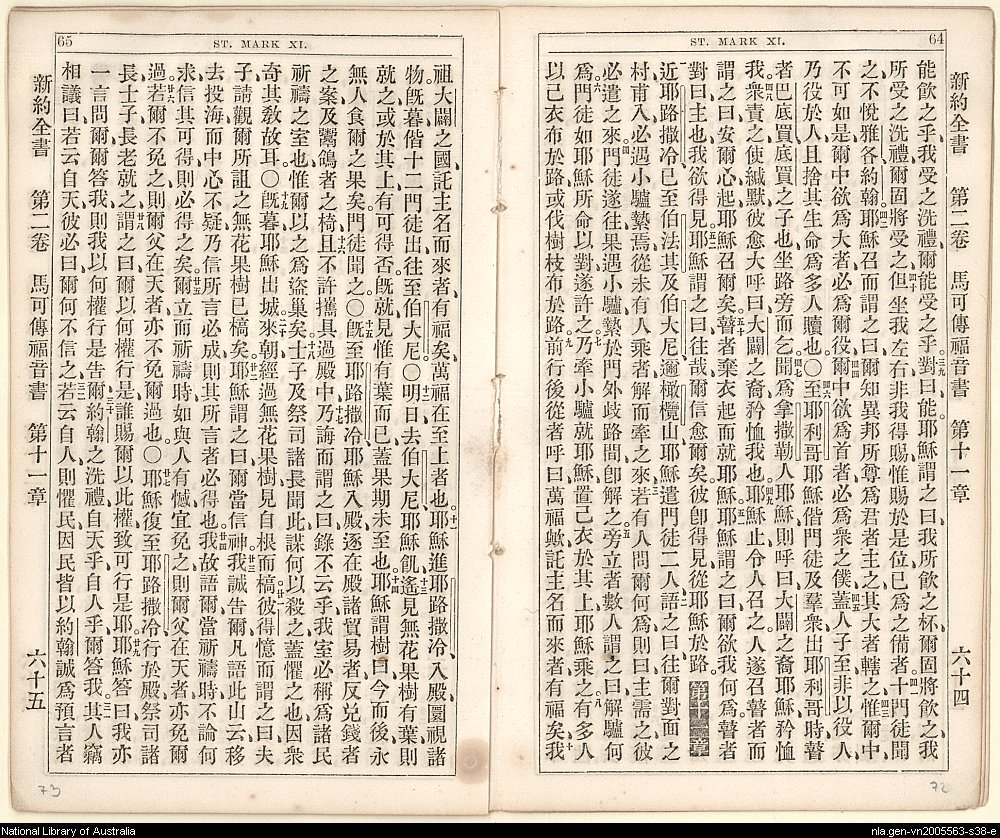 64
ST. MARK XI.
新約全書 第二卷 馬可傳福音書 第十一章 六十四
能飲之乎、我受之洗禮、爾能受之乎、對曰、能、耶穌謂之曰、我所飲之杯、爾固將飲之、我
所受之洗禮、爾固將受之、但坐我左右、非我得賜、惟賜於是位已爲之備者、十門徒聞
之、不悅雅各約翰、耶穌召而謂之曰、爾知異邦所尊爲君者主之、其大者轄之、惟爾中
不可如是、爾中欲爲大者、必爲爾役、爾中欲爲首者、必爲衆之僕、蓋人子至、非以役人、
乃役於人、且捨其生命、爲多人贖也、○至耶利哥、耶穌偕門徒及羣衆、出耶利哥時、瞽
者巴底買、底買之子也、坐路旁而乞、聞爲拿撒勒人耶穌、則呼曰、大闢之裔耶穌、矜恤
我、衆責之使緘默、彼愈大呼曰、大闢之裔、矜恤我也、耶穌止、令人召之、人遂召瞽者、而
謂之曰、安爾心、起、耶穌召爾矣、瞽者棄衣起而就耶穌、耶穌謂之曰、爾欲我何爲、瞽者
對曰、主也、我欲得見、耶穌謂之曰、往哉、爾信愈爾矣、彼卽得見、從耶穌於路。第十一章
近耶路撒冷、已至伯法其、及伯大尼、邇橄欖山、耶穌遣門徒二人、語之曰、往爾對面之
村、甫入、必遇小驢縶焉、從未有人乘者、解而牽之來、若有人問爾何爲、則曰、主需之、彼
必遣之來、門徒遂往、果遇小驢縶於門外歧路間、卽解之、旁立者數人謂之曰、解驢何
爲、門徒如耶穌所命以對、遂許之、乃牽小驢就耶穌、置己衣於其上、耶穌乘之、有多人
以己衣布於路、或伐樹枝布於路、前行後從者、呼曰、萬福歟、託主名而來者、有福矣、我
65
ST. MARK XI.
祖大闢之國、託主名而來者、有福矣、萬福在至上者也、耶穌進耶路撒冷、入殿、圜視諸
物、旣暮、偕十二門徒出、往至伯大尼、○明日去伯大尼、耶穌飢、遙見無花果樹有葉、則
就之、或於其上有可得否、旣就、見惟有葉而已、蓋果期未至也、耶穌謂樹曰、今而後永
無人食爾之果矣、門徒聞之、○旣至耶路撒冷、耶穌入殿、逐在殿諸貿易者、反兌錢者
之案、及鬻鴿者之椅、且不許攜具過殿中、乃誨而謂之曰、錄不云乎、我室必稱爲諸民
祈禱之室也、惟爾以之爲盜巢矣、士子及祭司諸長聞此、謀何以殺之、蓋懼之也、因衆
奇其敎故耳、○旣暮、耶穌出城、來朝經過、無花果樹、見自根而槁、彼得憶而謂之曰、夫
子、請觀爾所詛之無花果樹已槁矣、耶穌謂之曰、爾當信神、我誠告爾、凡語此山云、移
去投海、而中心不疑、乃信所言必成、則其所言者必得也、我故語爾、當祈禱時、不論何
求、信其可得、則必得之矣、爾立而祈禱時、如與人有憾、宜免之、則爾父在天者、亦免爾
過、若爾不免之、則爾父在天者、亦不免爾過也、○耶穌復至耶路撒冷、行於殿、祭司諸
長、士子、長老、就之、謂之曰、爾以何權行是、誰賜爾以此權、致可行是耶、耶穌答曰、我亦
一言問爾、爾答我、則我以何權行是告爾、約翰之洗禮、自天乎、自人乎、爾答我、其人竊
相議曰、若云自天、彼必曰、爾何不信之、若云自人、則懼民、因民皆以約翰誠爲預言者
新約全書 第二卷 馬可傳福音書 第十一章 六十五
73
72
National Library of Australia
nla.gen-vn2005563-s38-e